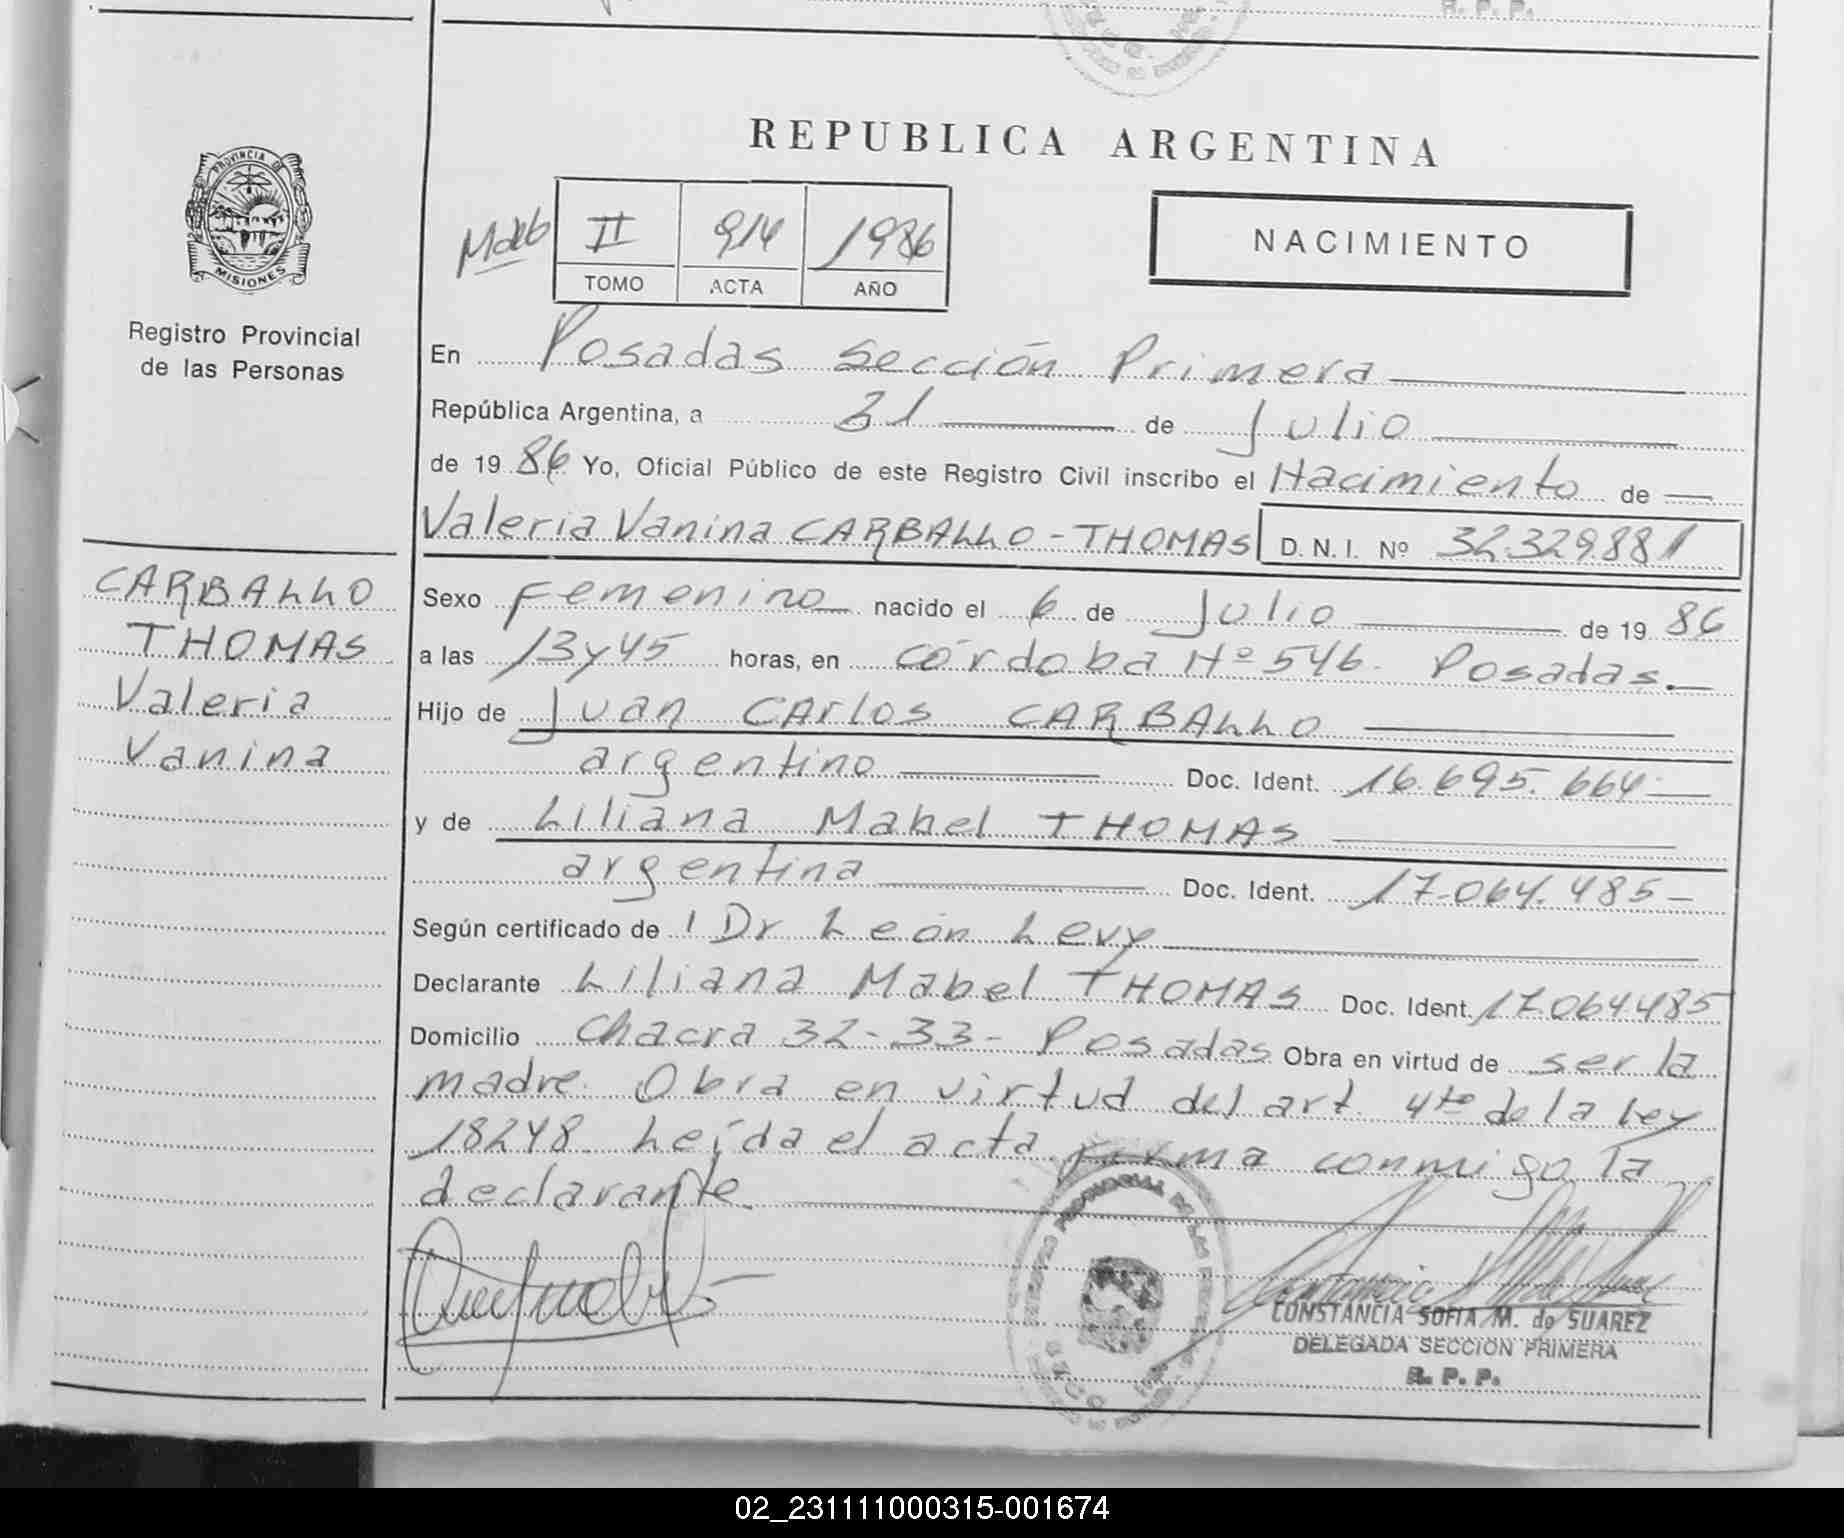 R. P. P.
REPUBLICA ARGENTINA
PROVINCIA DE
MISIONES
Registro Provincial
de las Personas
II 914 1986
TOMO ACTA AÑO
NACIMIENTO
En Posadas Sección Primera
República Argentina, a 31 de Julio
de 19 86 Yo, Oficial Público de este Registro Civil inscribo el Nacimiento de
Valeria Vanina CARBALLO - THOMAS D. N. I. Nº 32.329.881
CARBALLO
THOMAS
Valeria
Vanina
Sexo Femenino nacido el 6 de Julio de 19 86
a las 13 y 45 horas, en Córdoba Nº 546. Posadas.
Hijo de Juan CArlos CARBALLO
argentino Doc. Ident. 16.695.664
y de Liliana Mabel THOMAS
argentina Doc. Ident. 17.064.485
Según certificado de l Dr León Levy
Declarante Liliana Mabel THOMAS Doc. Ident. 17.064485
Domicilio Chacra 32-33- Posadas Obra en virtud de ser la
madre. Obra en virtud del art. 4to de la Ley
18248 Leída el acta firma conmigo la
declarante
CONSTANCIA SOFIA M. de SUAREZ
DELEGADA SECCION PRIMERA
R. P. P.
02_231111000315-001674